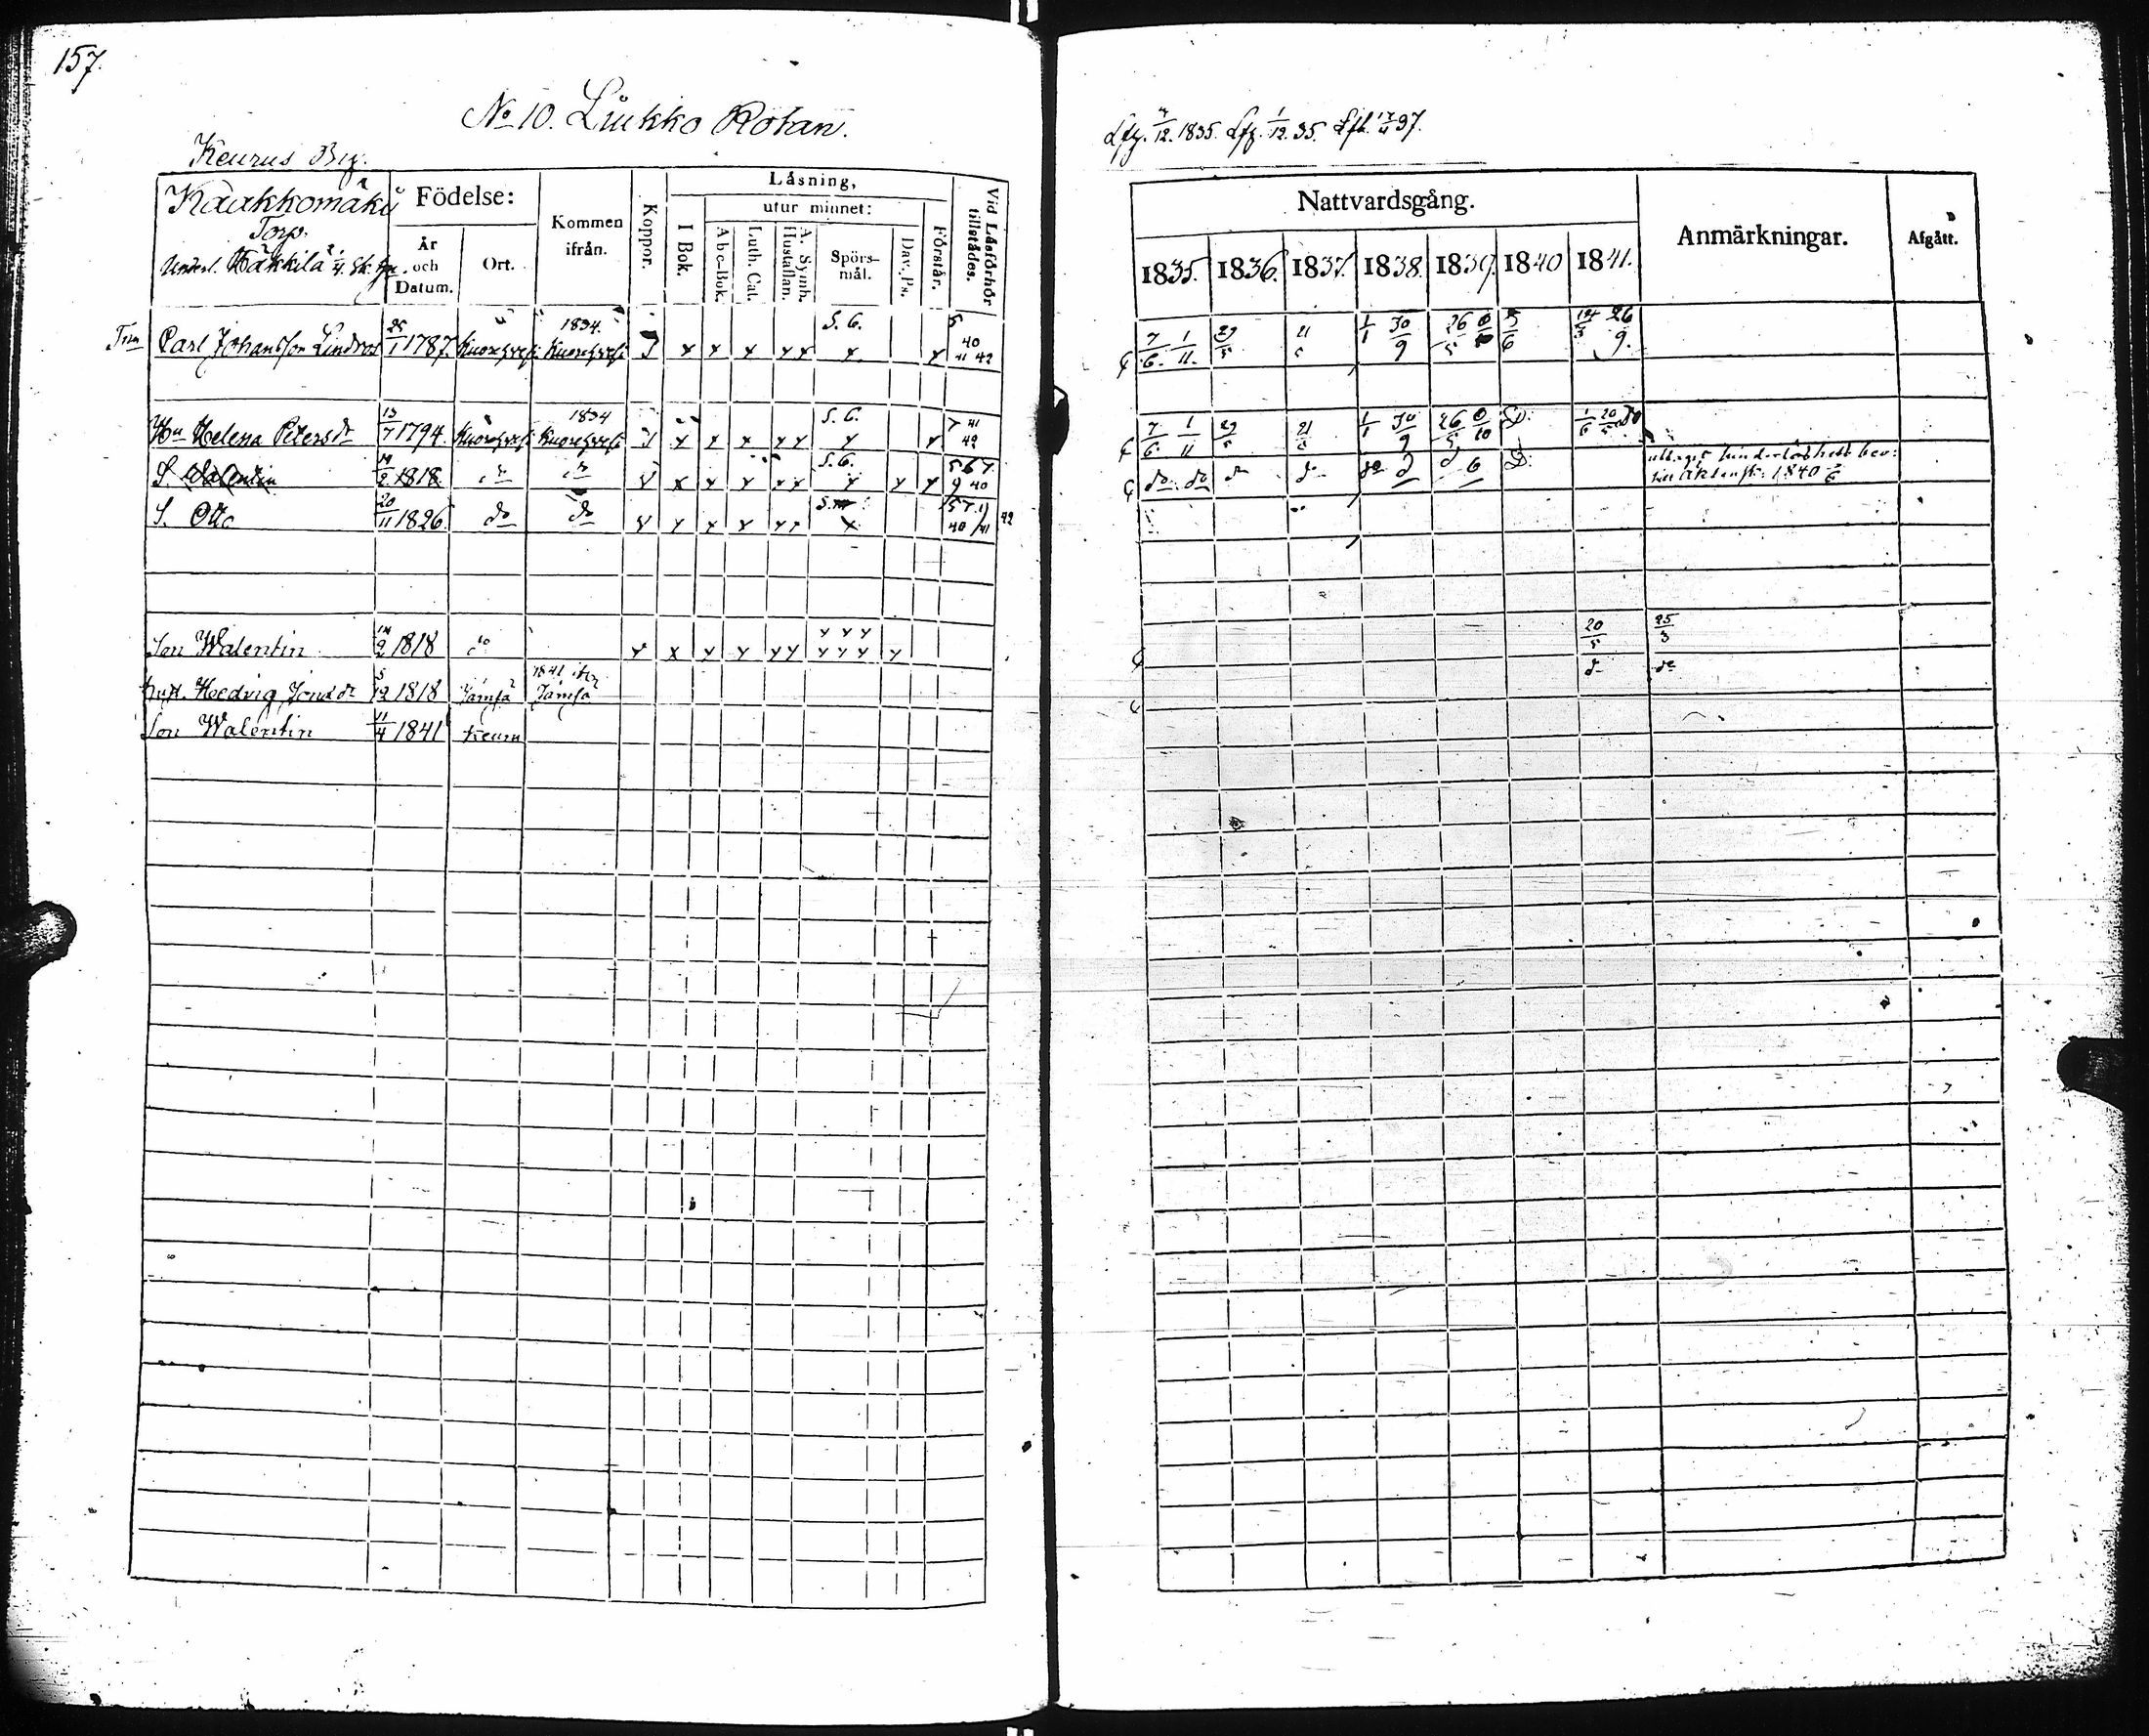 157.
No 10. Liukko Rotan.
Keurus By.
Kaakkomäki
Torp.
Underl. Häkkilä 1/4 Sk.
Födelse:
År och Datum.
Ort.
Kommen ifrån.
Koppor.
Låsning,
I Bok.
utur minnet:
Abc-Bok.
Luth. Cat.
A. Symb. Hustaflan.
Spörsmål.
Dav. Ps.
Förstår.
Vid Låsförhör tillstädes.
Carl Johansson Lindros 25/1 1787. Kuorevesi 1834. Kuorevesi S. G. 5 40 41 42
Hu Helena Petersdr 13/7 1794. Kuorevesi 1834 Kuorevesi S. G. 7 41 42
S. Walentin 14/2 1818 do do S. G. 5 6 7 9 40
S. Otto 20/11 1826. do do 5 7 40 41 42
Son Walentin 14/2 1818 do
hust. Hedvig 5/12 1818 Jämsä 1841 Jämsä
Son Walentin 11/4 1841 Keuru
Lfg. 12. 1835. Lfg. 1/12. 35. 37.
Nattvardsgång.
1835. 1836. 1837. 1838. 1839. 1840 1841.
Anmärkningar.
Afgått.
7/6. 1/11. 29/5 21 1/1 30/9 26/5 5/6 26/9.
7/6 1/11 29/5 21 1/1 30/9 26/5 6/10 D. 1/6 20/5
do do do do do D.
uttagit hinderlöshets bev:
1840
20/5 25/3
do do